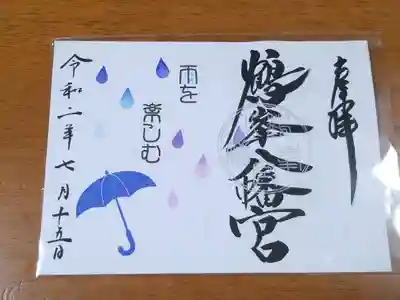 奉拝
鶴峯八幡宮
雨を
楽しむ
令和二年七月十五日